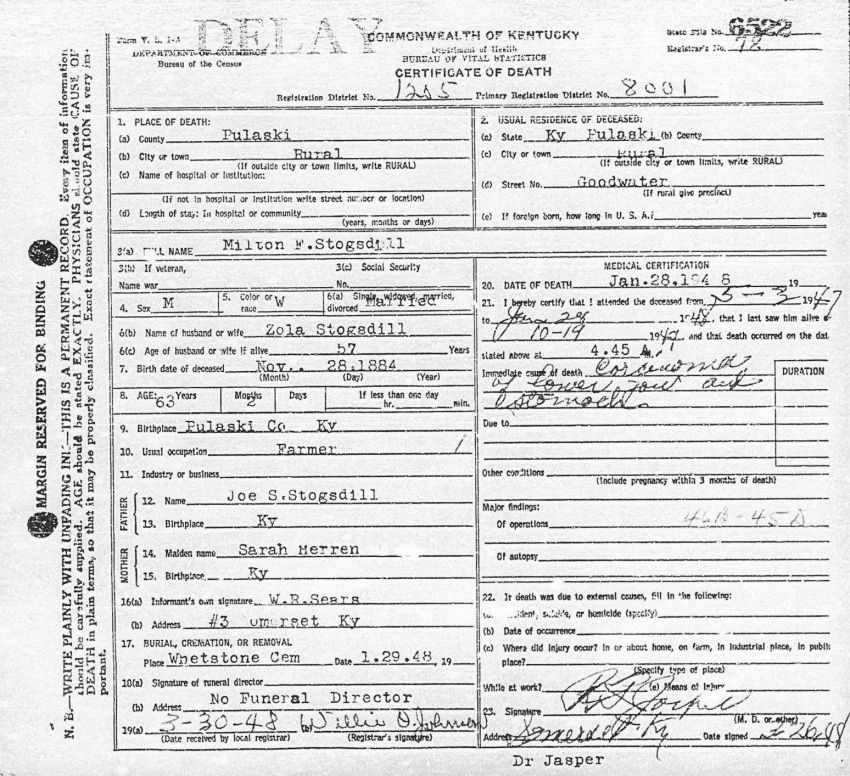 Form V. S. 1-A
DELAY
DEPARTMENT OF COMMERCE
Bureau of the Census
COMMONWEALTH OF KENTUCKY
Department of Health
BUREAU OF VITAL STATISTICS
CERTIFICATE OF DEATH
State File No.
Registrar's No. 78
Registration District No. 1255 Primary Registration District No. 8001
MARGIN RESERVED FOR BINDING
N. B.—WRITE PLAINLY WITH UNFADING INK—THIS IS A PERMANENT RECORD. Every item of information
should be carefully supplied. AGE should be stated EXACTLY. PHYSICIANS should state CAUSE OF
DEATH in plain terms, so that it may be properly classified. Exact statement of OCCUPATION is very im-
portant.
1. PLACE OF DEATH:
(a) County Pulaski
(b) City or town Rural
(If outside city or town limits, write RURAL)
(c) Name of hospital or institution:
(If not in hospital or institution write street number or location)
(d) Length of stay: In hospital or community
(years, months or days)
2. USUAL RESIDENCE OF DECEASED:
(a) State Ky Pulaski (b) County
(c) City or town Rural
(If outside city or town limits, write RURAL)
(d) Street No. Goodwater
(If rural give precinct)
(e) If foreign born, how long in U. S. A.? year
3(a) FULL NAME Milton F.Stogsdill
3(b) If veteran, 3(c) Social Security
Name war No.
4. Sex M 5. Color or race W 6(a) Single, widowed, married, divorced Married
6(b) Name of husband or wife Zola Stogsdill
6(c) Age of husband or wife if alive 57 Years
7. Birth date of deceased Nov.. 28.1884
(Month) (Day) (Year)
8. AGE: 63 Years Months 2 Days If less than one day
hr. min.
9. Birthplace Pulaski Co Ky
10. Usual occupation Farmer
11. Industry or business
FATHER
12. Name Joe S.Stogsdill
13. Birthplace Ky
MOTHER
14. Maiden name Sarah Herren
15. Birthplace Ky
16(a) Informant's own signature W.R.Sears
(b) Address #3 omerset Ky
17. BURIAL, CREMATION, OR REMOVAL
Place Whetstone Cem Date 1.29.48, 19
18(a) Signature of funeral director
(b) Address No Funeral Director
19(a) 3-30-48 (b) Willie O. Johnson
(Date received by local registrar) (Registrar's signature)
MEDICAL CERTIFICATION
20. DATE OF DEATH Jan.28.1948 19
21. I hereby certify that I attended the deceased from 5-3 1947
to Jan 28 1948, that I last saw him alive o
10-19 1947, and that death occurred on the dat
stated above at 4.45 A M.
Immediate cause of death Carcinoma
of lower jaw and
stomach
DURATION
Due to
Other conditions
(Include pregnancy within 3 months of death)
Major findings:
Of operations 46B-45D
Of autopsy
22. If death was due to external causes, fill in the following:
(a) Accident, suicide, or homicide (specify)
(b) Date of occurrence
(c) Where did injury occur? In or about home, on farm, in industrial place, in public
place?
(Specify type of place)
While at work? (e) Means of injury
23. Signature
(M. D. or other)
Address Somerset Ky Date signed 2-26-48
Dr Jasper